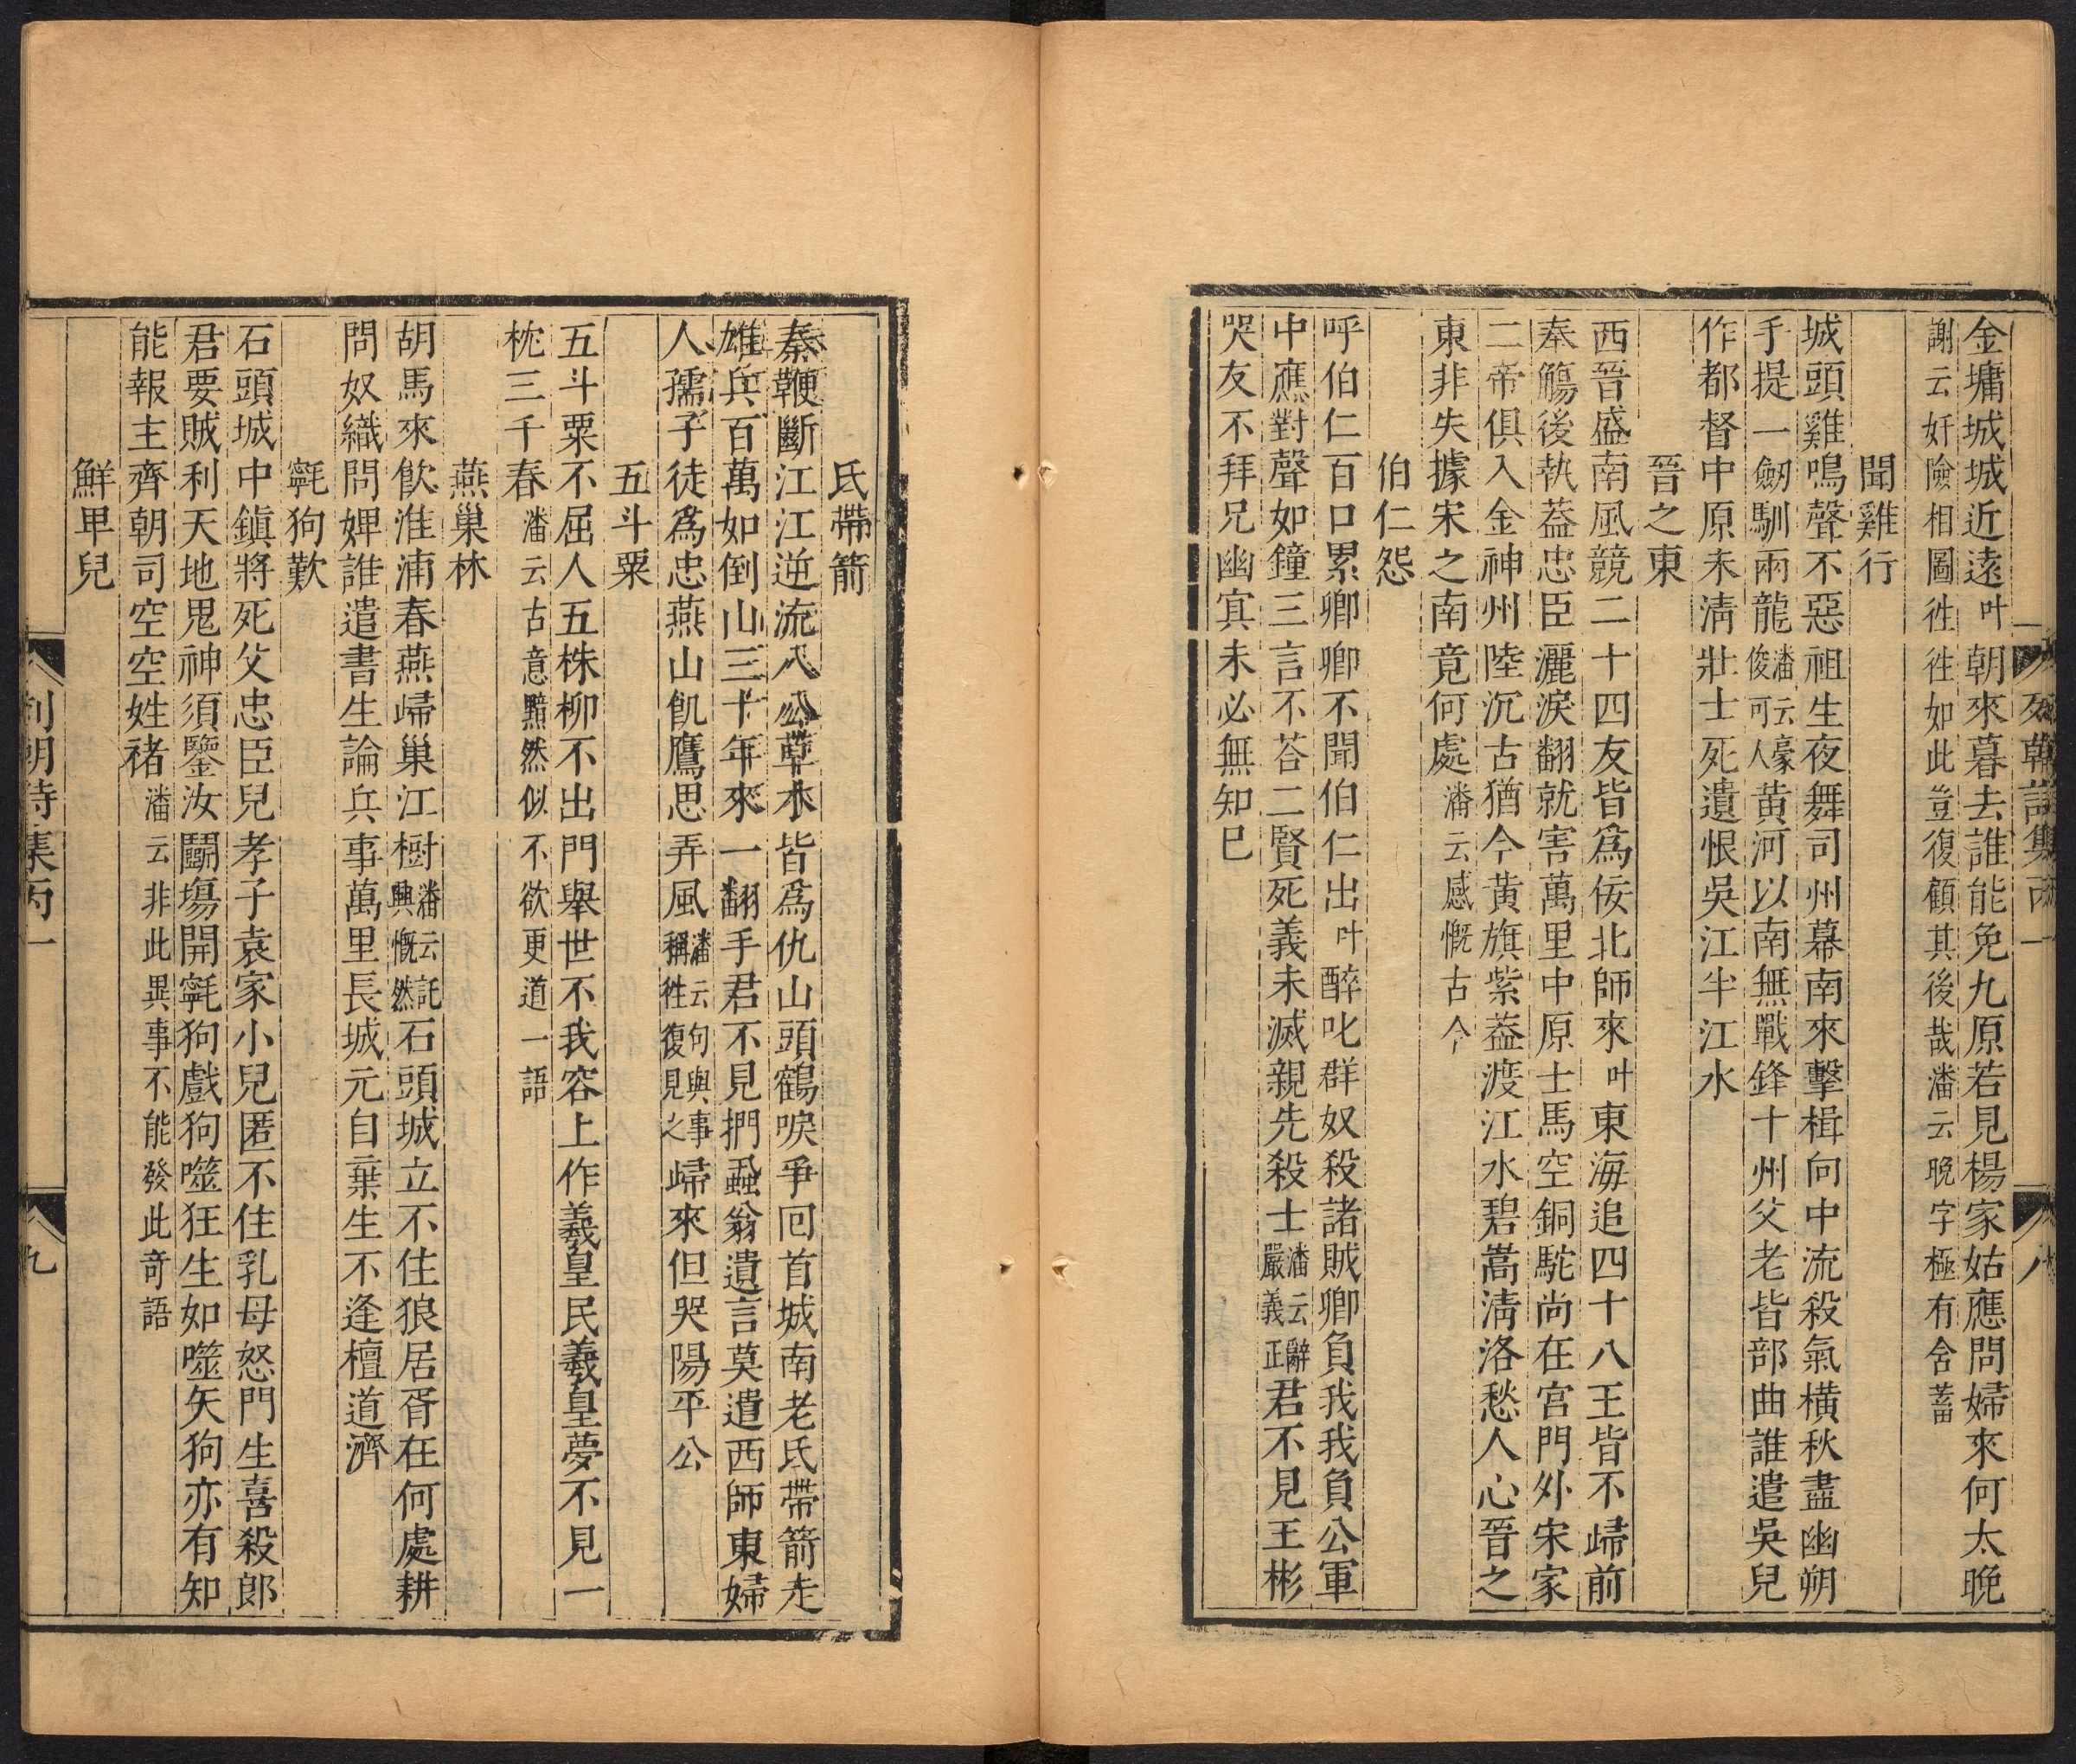 金墉城城近遠叶朝來暮去誰能免九原若見楊家姑應問婦來何太晚
謝云奸險相圖徃徃如此豈復顧其後哉潘云晚字極有含蓄
聞雞行
城頭雞鳴聲不惡祖生夜舞司州幕南來擊楫向中流殺氣橫秋盡幽朔
手提一劒馴兩龍潘云豪俊可人黃河以南無戰鋒十州父老皆部曲誰遣吳兒
作都督中原未淸壯士死遺恨吳江半江水
晉之東
西晉盛南風競二十四友皆爲佞北師來叶東海追四十八王皆不歸前
奉觴後執葢忠臣灑淚翻就害萬里中原士馬空銅駝尚在宮門外宋家
二帝俱入金神州陸沉古猶今黃旗紫葢渡江水碧嵩淸洛愁人心晉之
東非失據宋之南竟何處潘云感慨古今
伯仁怨
呼伯仁百口累卿卿不聞伯仁出叶醉叱群奴殺諸賊卿負我我負公軍
中應對聲如鐘三言不荅二賢死義未滅親先殺士潘云辭嚴義正君不見王彬
哭友不拜兄幽㝠未必無知巳
八
氐帶箭
秦鞭斷江江逆流八公草木皆爲仇山頭鶴唳爭回首城南老氐帶箭走
雄兵百萬如倒山三十年來一翻手君不見捫蝨翁遺言莫遣西師東婦
人孺子徒爲忠燕山飢鷹思弄風潘云句與事稱徃復見之歸來但哭陽平公
五斗粟
五斗粟不屈人五株柳不出門舉世不我容上作羲皇民羲皇夢不見一
枕三千春潘云古意黯然似不欲更道一語
燕巢林
胡馬來飲淮浦春燕歸巢江樹潘云託興慨然石頭城立不住狼居胥在何處耕
問奴織問婢誰遣書生論兵事萬里長城元自棄生不逢檀道濟
氄狗歎
石頭城中鎮將死父忠臣兒孝子袁家小兒匿不住乳母怒門生喜殺郎
君要賊利天地鬼神須鑒汝鬭塲開氄狗戲狗噬狂生如噬矢狗亦有知
能報主齊朝司空空姓褚潘云非此異事不能發此奇語
鮮卑兒
列朝詩集丙一
九